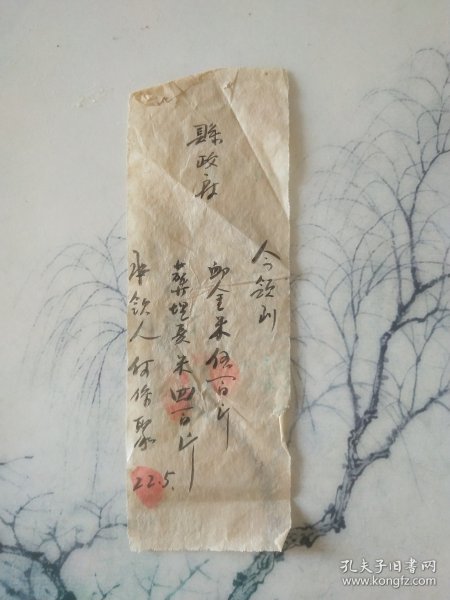 今领到
縣政府
卹金米伍百斤
葬埋費米四百斤
承欽人何修聚
22.5.
孔夫子旧书网
www.kongfz.com